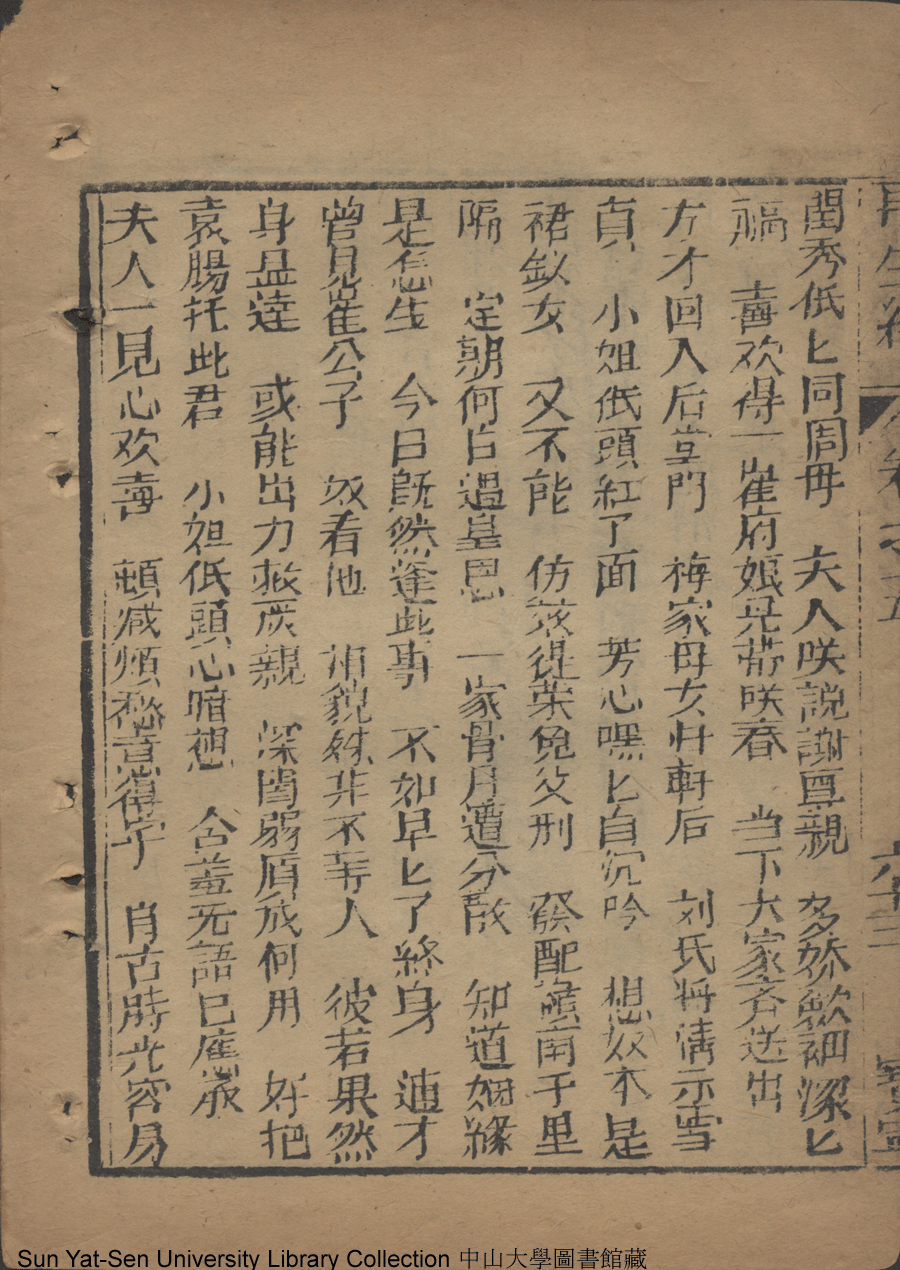 閨秀低匕同周母　夫人咲說謝亘親　多
福　喜欢得一崔府娘兄帶咲春　当下大家齐送出
方才回入后堂門　梅家母女归軒后　刘氏将情示雪
貞　小姐低頭紅了面　芳心嘿匕自沉吟　想奴不是
裙釵女　又不能　仿效提荣免父刑　發配嶺南千里
隔　定朝何日遇皇恩　一家骨月遭分散　知道姻緣
是怎生　今日既然逢此事　不如早匕了終身　適才
曾見崔公子　奴看他　相貌殊非不芋人　彼若果然
身显達　或能出力救灰親　深閨弱質成何用　好把
衷腸托此君　小姐低頭心暗想　含羞无語已應承
夫人一見心欢喜　頓减煩愁意得宁　肖古時光容易
再生緣
卷之五
六十三
Sun Yat-Sen University Library Collection 中山大學圖書館藏